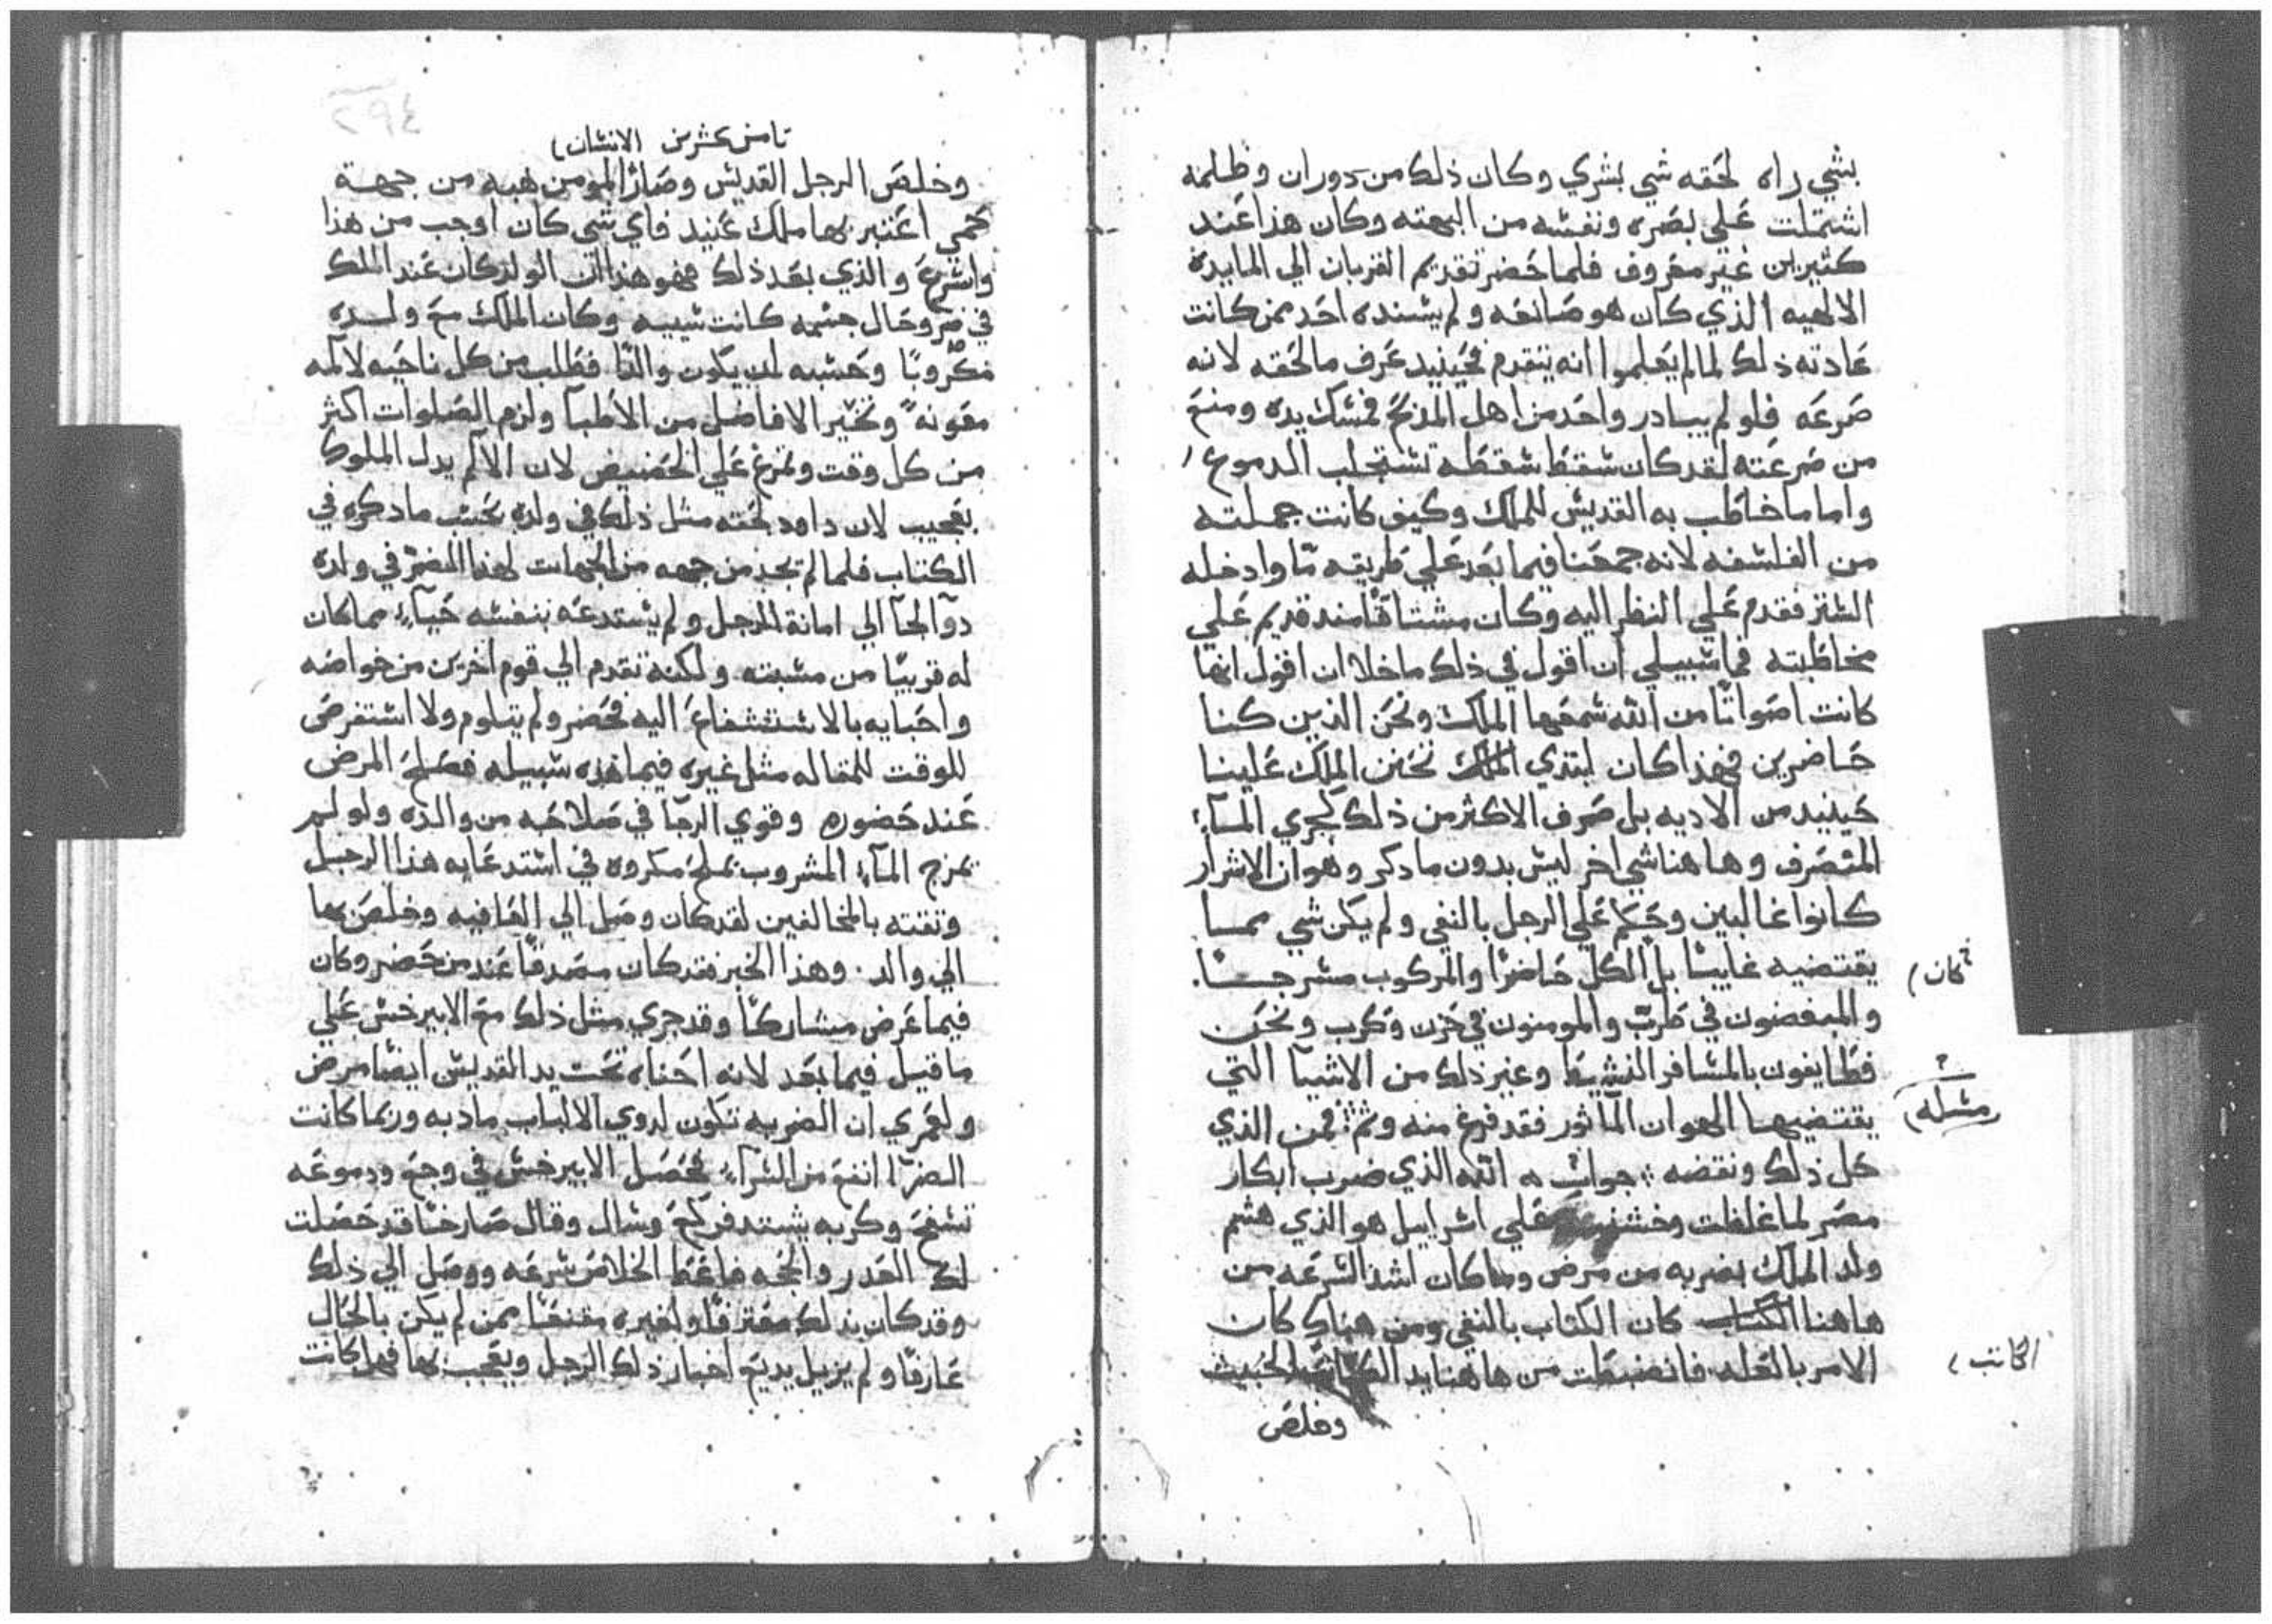 بشي راه لحقه شي بشري وكان ذلك من دوران وظلمه
اشتملت علي بصره ونفسه من البهته وكان هذا عند
كثيرين غير معروف فلما حضر تقديم القربان الي المايدة
الالهيه الذي كان هو صانعه ولم يسنده احد ممن كانت
عادته ذلك لما لم يعلموا انه يتقدم فحينيد عرف ما لحقه لانه
صرعه فلو لم يبادر واحد من اهل المذبح فمسك يده ومنع
من صرعته لقد كان سقط سقطه تستجلب الدموع
واما ما خاطب به القديس للملك وكيف كانت جملته
من الفلسفه لانه جمعنا فيما بعد علي طريقه ما وادخله
الستر فقدم علي النظر اليه وكان مشتاقا مند قديم علي
مخاطبته فما سبيلي ان اقول في ذلك ما خلا ان اقول انها
كانت اصواتا من الله سمعها الملك ونحن الذين كنا
حاضرين فهذا كان ابتدي الملك تحنن الملك علينا
حينيد من الاديه بل صرف الاكثر من ذلك كجري المآء
المنصرف وهاهنا شي اخر ليس بدون ما دكر وهو ان الاشرار
كانوا غالبين وحكم علي الرجل بالنفي ولم يكن شي مما
يقتضيه غايبا بل الكل حاضرا والمركوب مسرجا
كان
والمبغضون في طرب والمومنون في حزن وكرب ونحن
فطايفون بالمسافر النشيط وغير دلك من الاشيا التي
يقتضيها الهوان الماثور فقد فرغ منه وتم فمن الذي
مسله
كل ذلك ونقضه جواب الله الذي ضرب ابكار
مصر لما غلظت وخشنت علي اسراييل هو الذي هشم
ولد الملك بضربه من مرض وما كان اشد السرعه من
هاهنا الكتاب كان الكتاب بالنفي ومن هناك كان
الامر بالعله فانضبطت من هاهنا يد الكاتب الخبيث
الكاتب
وخلص
٢٩٤
تامن عشرين الانسان
وخلص الرجل القديس وصار المومن هبه من جهة
حمي اعتبر بها ملك عنيد فاي شي كان اوجب من هذا
واسرع والذي بعد ذلك فهو هذا ان الولد كان عند الملك
في ضر وحال جسمه كانت سييه وكان الملك مع ولده
مكروبا وحسبه ان يكون والدا فطلب من كل ناحيه لالمه
معونة وتخير الافاضل من الاطبا ولزم الصلوات اكثر
من كل وقت وتمرغ علي الحضيض لان الالم يدل الملوك
بعجيب لان داود لحقه مثل ذلك في ولده بحسب ما دكره في
الكتاب فلما لم تجد من جهه من الجهات لهذا الضر في ولده
دوآ لجآ الي امانة الرجل ولم يستدعه بنفسه حيآء مما كان
له قريبا من مسبته ولكنه تقدم الي قوم اخرين من خواصه
واحبايه بالاستشفاع اليه فحضر ولم يتلوم ولا استفرض
للوقت للمقاله مثل غيره فيما هذه سبيله فصلح المرض
عند حضوره وقوي الرجآ في صلاحه من والده ولو لم
يمزج المآء المشروب بملح مكروه في استدعايه هذا الرجل
وتقته بالمخالفين لقد كان وصل الي العافيه وخلص بها
الي والد وهذا الخبر فقد كان مصدقا عند من حضر وكان
فيما عرض مشاركا وقد جري مثل ذلك مع الابيرخس علي
ما قيل فيما بعد لانه احناه تحت يد القديس ايضا مرض
ولعمري ان الضربه تكون لدوي الالباب مادبه وربما كانت
الضرآ انفع من السرآء فحصل الابيرخس في وجع ودموعه
تسفح وكربه يشتد فركع وسال وقال صارخا قد حصلت
لك القدر والجه فاعط الخلاص سرعه ووصل الي ذلك
وقد كان بذلك معترفا ولغيره مقنعا ممن لم يكن بالحال
عارفا ولم يزيل يديع اخبار ذلك الرجل ويعجب بها فهل كانت